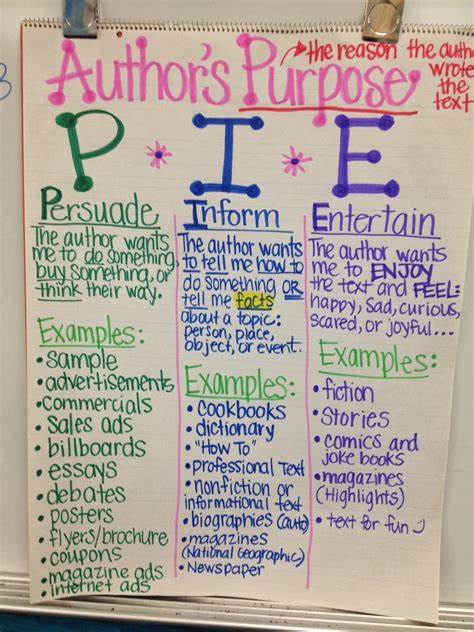 Author's Purpose
→ the reason the author
wrote
the
text
P * I * E
Persuade
The author wants
me to do something,
buy something, or
think their way.
Examples:
• sample
• advertisements
• commercials
• sales ads
• billboards
• essays
• debates
• posters
• flyers/brochure
• coupons
• magazine ads
• internet ads
Inform
The author wants
to tell me how to
do something OR
tell me facts
about a topic:
person, place,
object, or event.
Examples:
• cookbooks
• dictionary
• "How To"
• professional Text
• nonfiction or
informational text
• biographies (auto)
• magazines
(National Geographic)
• Newspaper
Entertain
The author wants
me to ENJOY
the text and FEEL:
happy, sad, curious,
scared, or joyful...
Examples:
• fiction
• Stories
• comics and
joke books
• magazines
(Highlights)
• text for fun :)